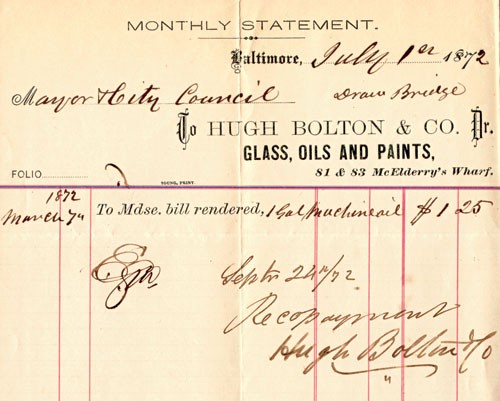 MONTHLY STATEMENT.
Baltimore, July 1st 1872
Mayor & City Council Draw Bridge
To HUGH BOLTON & CO. Dr.
GLASS, OILS AND PAINTS,
FOLIO
YOUNG, PRINT
81 & 83 McElderry's Wharf.
1872
March 7th To Mdse. bill rendered, 1 Gal Machine oil $1 25
Septr 24th/72
Rec payment
Hugh Bolton & Co